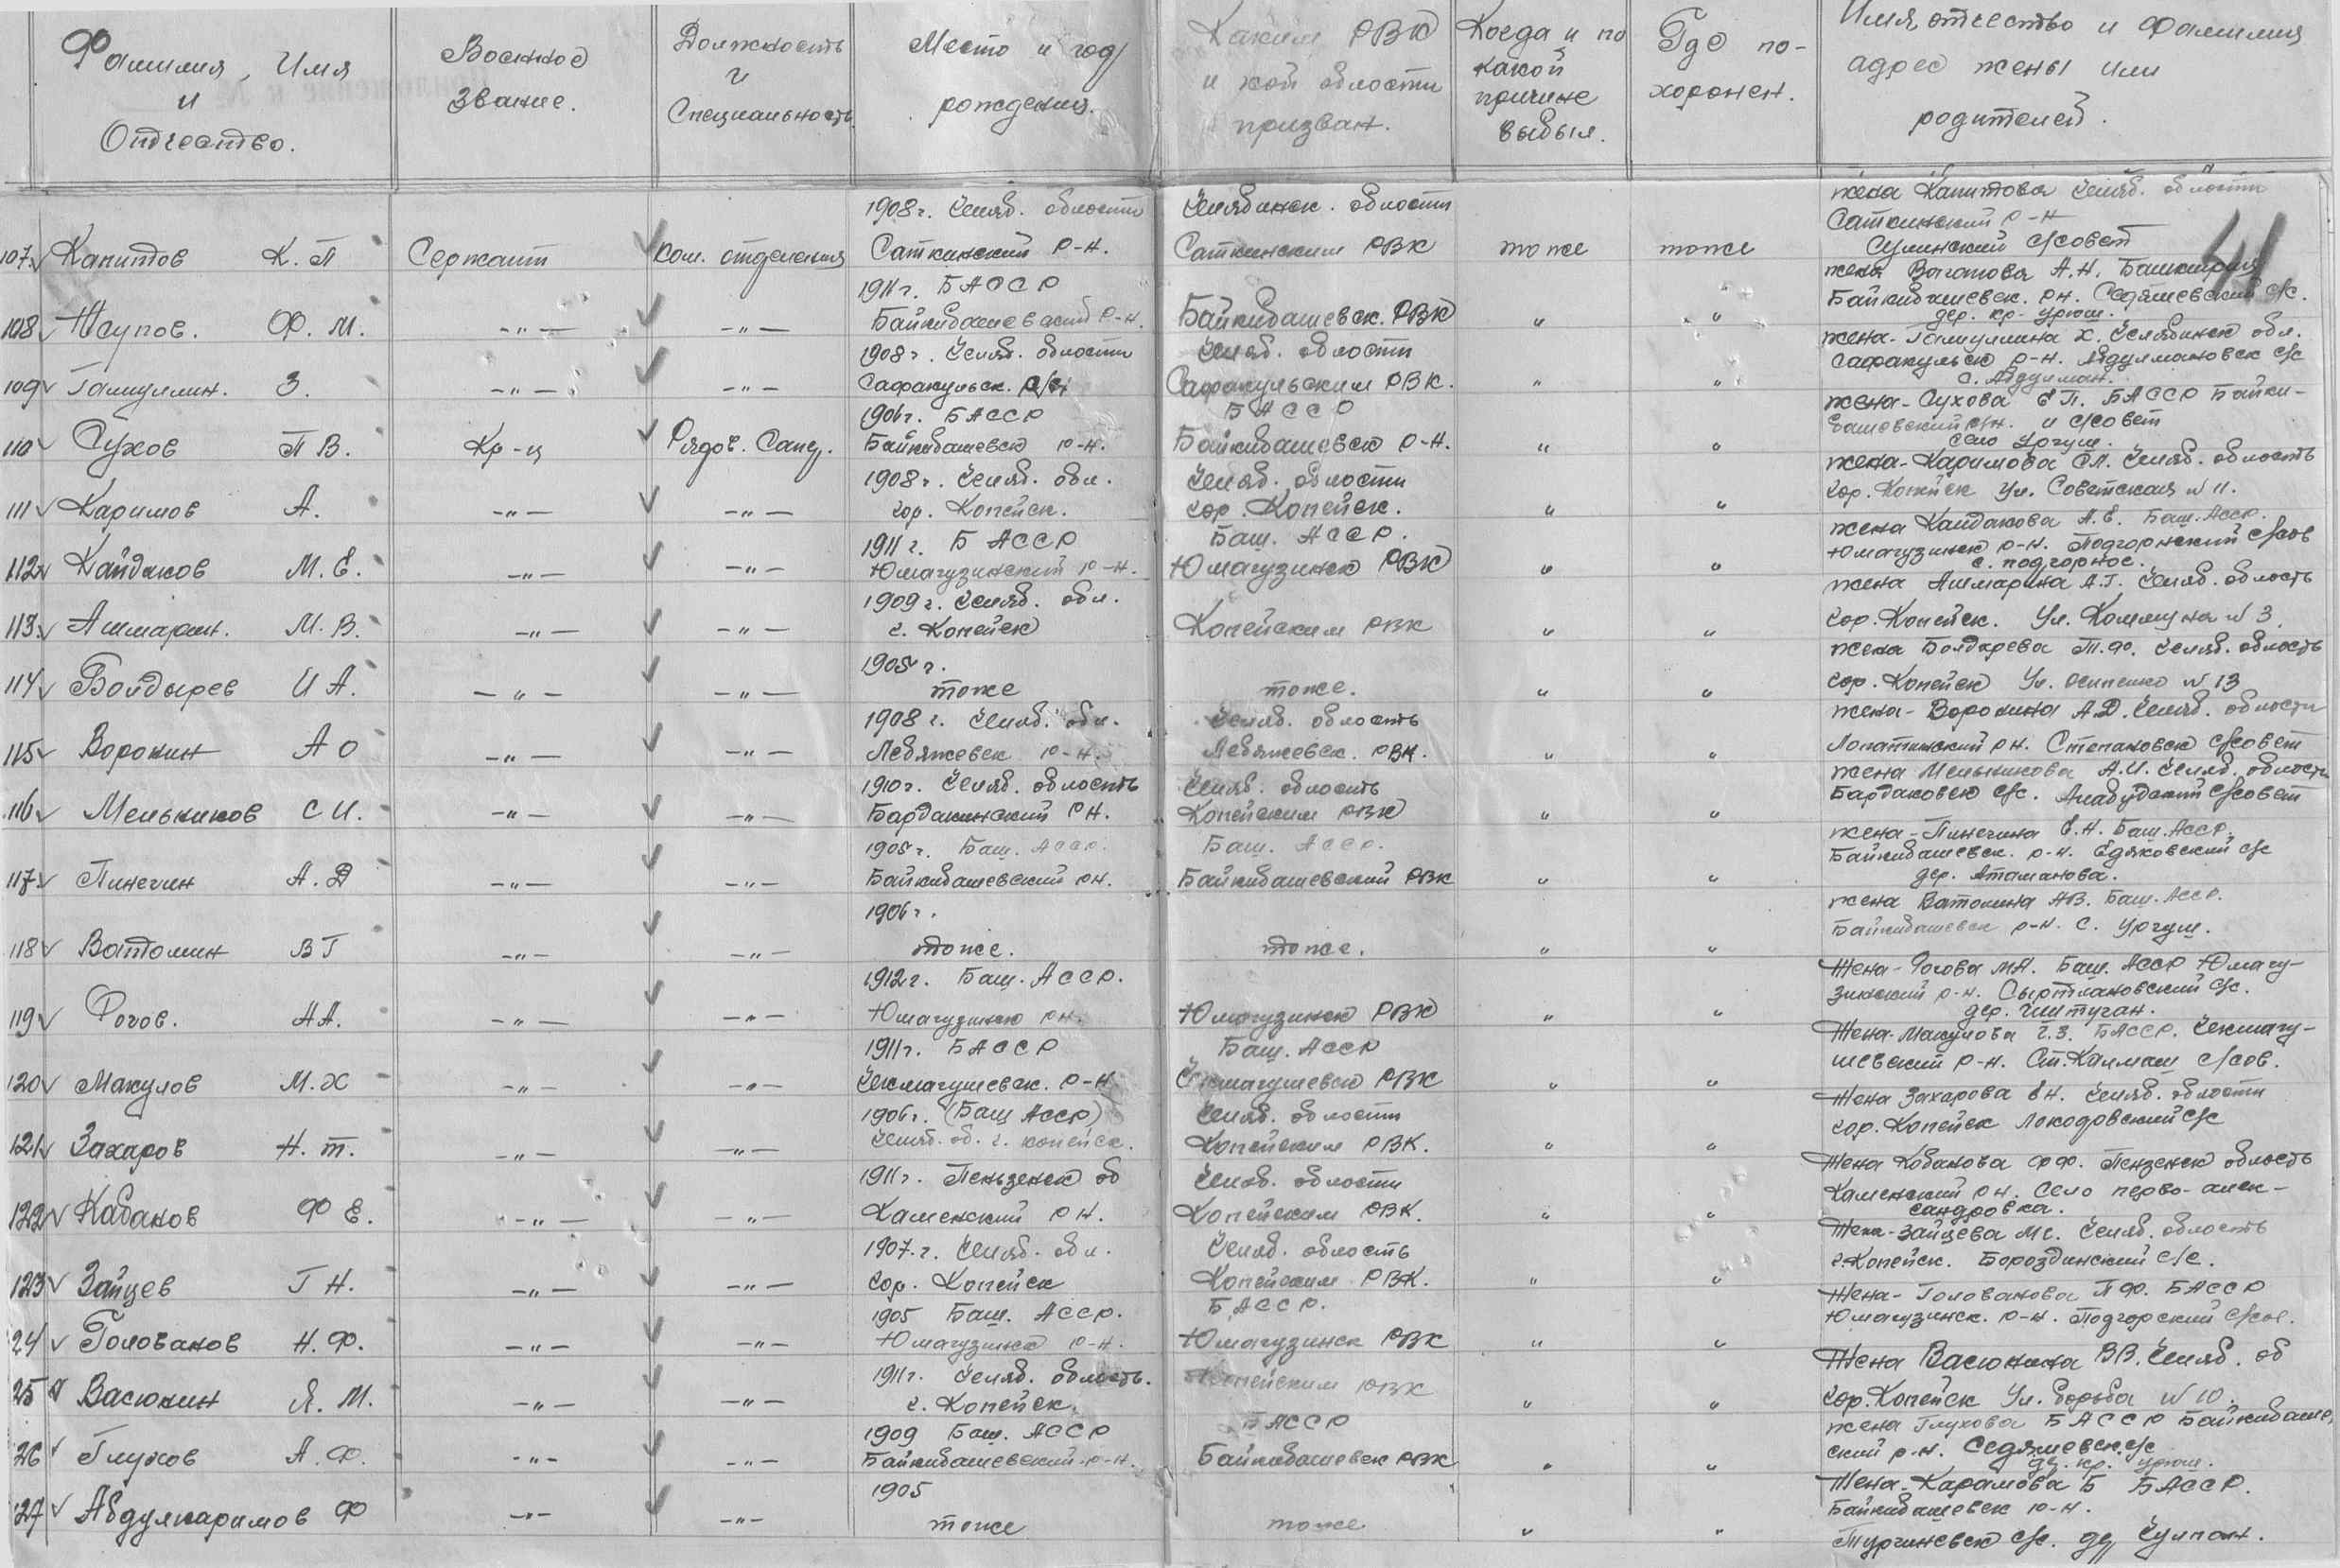 Фамилия, Имя
и
Отчество.
Военное
звание.
Должность
и
Специальность
Место и год
рождения.
Каким РВК
и кой области
призван.
Когда и по
какой
причине
выбыл.
Где по-
хоронен.
Имя, отчество и фамилия
адрес жены или
родителей.
41
107. Капитов К. П Сержант ком. отделения
1908 г. Челяб. области
Саткинский р-н.
Челябинск. области
Саткинским РВК
тоже тоже
жена Капитова Челяб. области
Саткинский р-н
Сулинский с/совет
108 Юсупов. Ф. М. -"- -"-
1911 г. БАССР
Байкибашевский р-н.
Байкибашевск. РВК " "
жена Вагапова А.Н. Башкирия
Байкибашевск. рн. Седяшевский с/с.
дер. кр- урюш.
109 Гамуллин. З. -"- -"-
1908 г. Челяб. области
Сафакульск.
Челяб. области
Сафакульским РВК. " "
жена- Гамуллина Х. Челябинск обл.
Сафакульск р-н. Абдулмановск с/с
с. Абдулман.
110 Сухов П В. Кр-ц Рядов. Сапер.
1906 г. БАССР
Байкибашевск р-н.
БАССР
Байкибашевск р-н. " "
жена- Сухова Е П. БАССР Байки-
башевский р/н. и с/совет
село Ургуш.
111 Каримов А. -"- -"-
1908 г. Челяб. обл.
гор. Копейск.
Челяб. области
гор. Копейск. " "
жена- Каримова Челяб. область
гор. Копейск ул. Советская № 11.
112 Кайдаков М. Е. -"- -"-
1911 г. БАССР
Юмагузинский р-н.
Баш. АССР.
Юмагузинск РВК " "
жена Кайдакова А. Е. Баш. АССР.
Юмагузинск р-н. Подгорнский с/сов
с. подгорное.
113. Ашмарин. М. В. -"- -"-
1909 г. Челяб. обл.
г. Копейск
Копейским РВК " "
жена Ашмарина А. Г. Челяб. область
гор. Копейск. Ул. Коммуна № 3.
114 Болдырев И А. -"- -"-
1905 г.
тоже
тоже. " "
жена Болдырева Т. Ф. Челяб. область
гор. Копейск Ул. Осипенко № 13
115 Воронин А О -"- -"-
1908 г. Челяб. обл.
Лебяжевск р-н.
Челяб. область
Лебяжевск. РВК. " "
жена- Воронина А. Д. Челяб. области
Лопатинский рн. Степановск с/совет
116 Мельников С И. -"- -"-
1910 г. Челяб. область
Бардакинский РН.
Челяб. область
Копейским РВК " "
жена Мельникова А. И. Челяб. области
Бардаковск с/с. с/совет
117. Пинегин А. Д -"- -"-
1905 г. Баш. АССР.
Байкибашевский рн.
Баш. АССР.
Байкибашевский РВК " "
жена- Пинегина Е. Н. Баш. АССР.
Байкибашевск. р-н. Едяковский с/с
дер. Атаманова.
118 Ватолин В Г -"- -"-
1906 г.
тоже.
тоже. " "
жена Ватолина А В. Баш. АССР.
Байкибашевск р-н. с. Ургуш.
119 Фогов. Н А. -"- -"-
1912 г. Баш. АССР.
Юмагузинск рн.
Юмагузинск РВК " "
Жена- Фогова М Н. Баш. АССР Юмагу-
зинский р-н. Сыртлановский с/с.
дер. Чимтуган.
120 Макулов М. Х -"- -"-
1911 г. БАССР
Чекмагушевск. р-н
Баш. АССР
Чекмагушевск РВК " "
Жена- Макулова Г. З. БАССР. Чекмагу-
шевский р-н. Ст. Калмаш с/сов.
121 Захаров Н. Т. -"- -"-
1906 г. (Баш АССР)
Челяб. об. г. Копейск.
Челяб. области
Копейским РВК. " "
Жена Захарова Е Н. Челяб. области
гор. Копейск с/с
122 Кабанов Ф Е. -"- -"-
1911 г. Пензенск об
Каменский РН.
Челяб. области
Копейским РВК. " "
Жена Кабанова Ф Ф. Пензенск область
Каменский рн. село перво- алек-
сандровка.
123 Зайцев Г Н. -"- -"-
1907. г. Челяб. обл.
гор. Копейск
Челяб. область
Копейским РВК. " "
Жена- Зайцева М с. Челяб. область
г. Копейск. Бороздинский с/с.
24 Голованов Н. Ф. -"- -"-
1905 Баш. АССР.
Юмагузинск р-н.
БАССР.
Юмагузинск РВК " "
Жена- Голованова П Ф. БАССР
Юмагузинск. р-н. Подгорский с/сов.
25 Васюнин Я. М. -"- -"-
1911 г. Челяб. область.
г. Копейск.
Копейским РВК " "
Жена Васюнина В В. Челяб. об
гор. Копейск Ул. борьба № 10.
26 Глухов А. Ф. -"- -"-
1909 Баш. АССР
Байкибашевский р-н.
БАССР
Байкибашевск РВК " "
жена Глухова БАССР Байкибашев
ский р-н. Седяшевск. с/с
де. кр. урюш.
27 Абдулкаримов Ф -"- -"-
1905
тоже
тоже " "
Жена- Карамова Б БАССР.
Байкибашевск р-н.
с/с. де Чулпан.